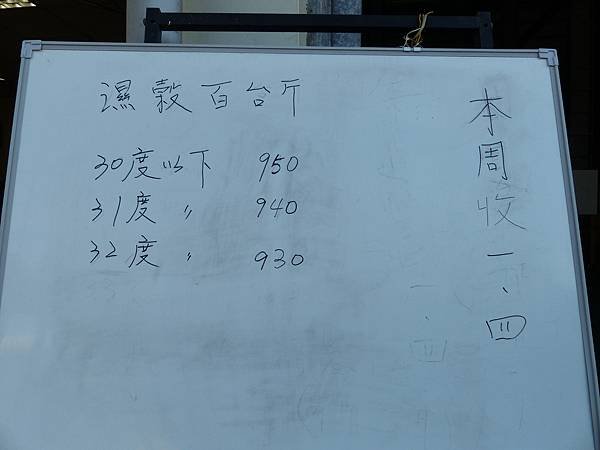 濕穀百台斤
30度以下 950
31度 〃 940
32度 〃 930
本周收一、四
一、四